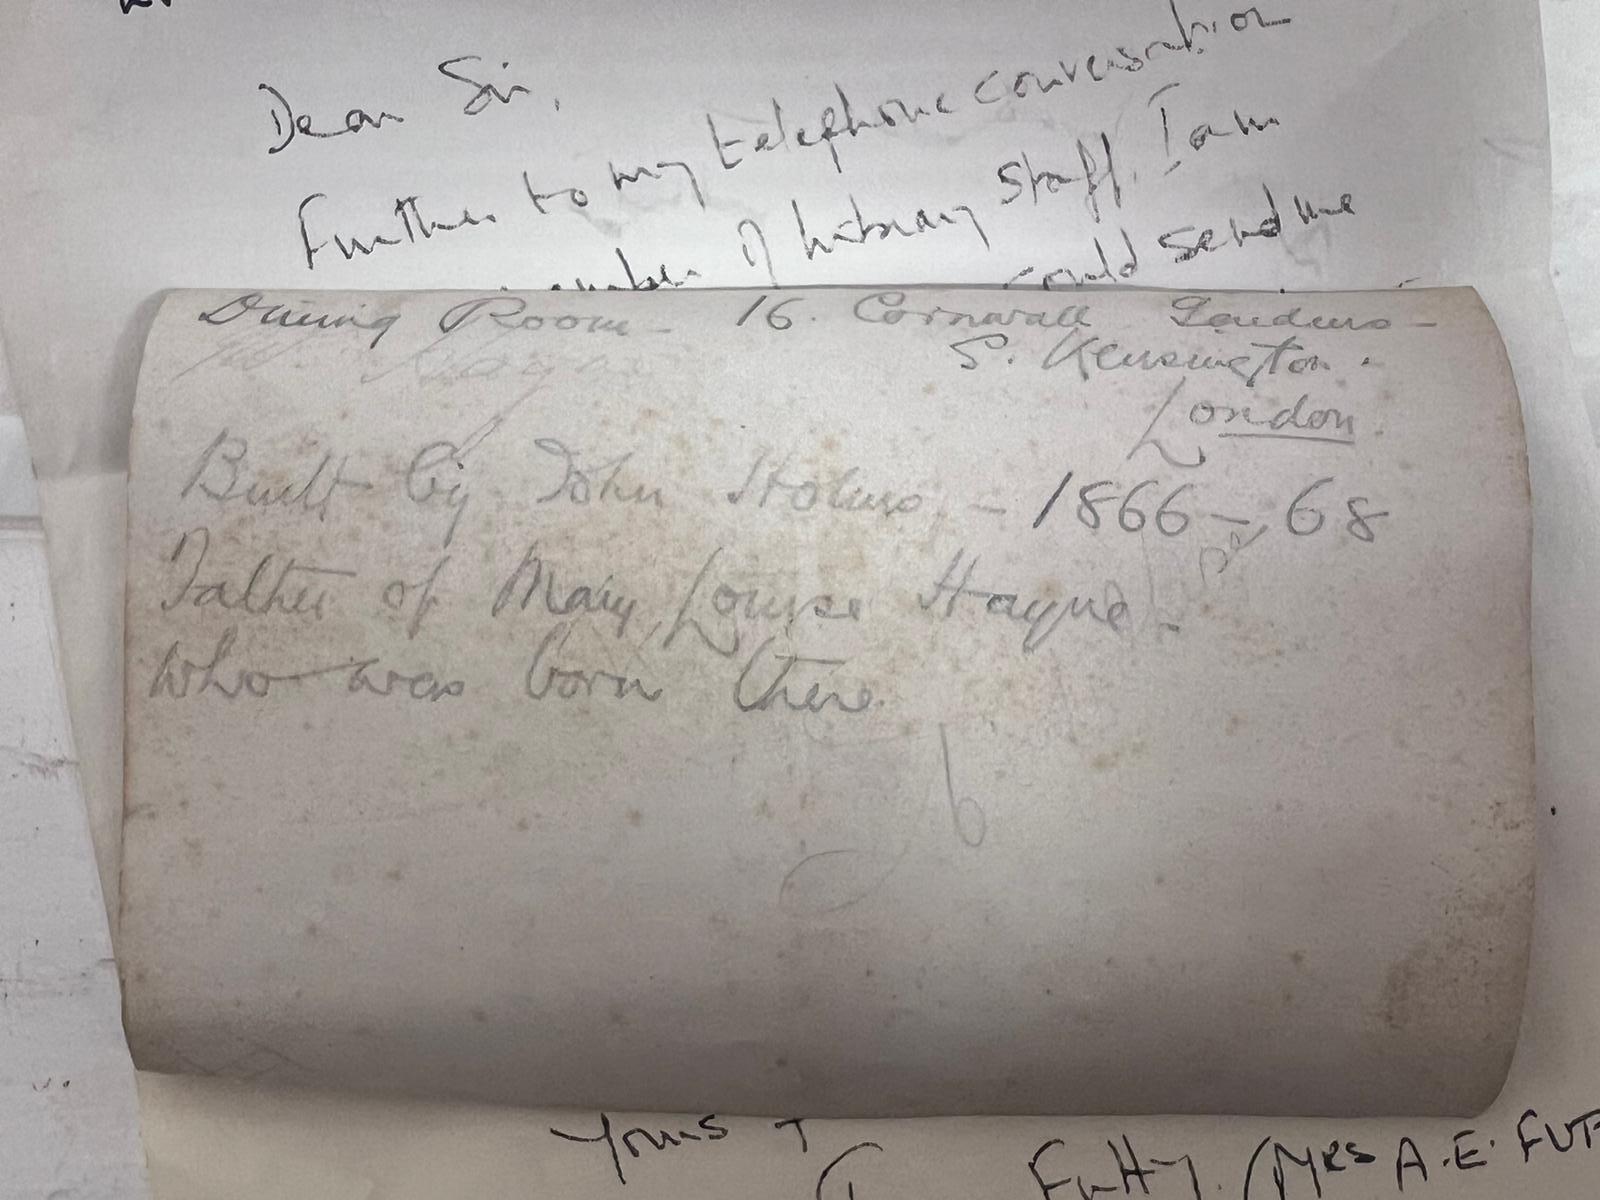 Dear Sir,
Further to my telephone conversation
member of library staff. I am
could send me
Dining Room - 16. Cornwall Gardens -
S. Kensington.
London.
Built by John Holms, - 1866 - 68
Father of Mary Louise Hayne.
who was born there.
6
Yours
Futty. (Mrs A.E. FUT